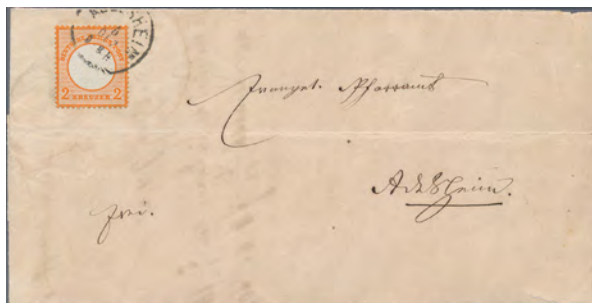 2 KREUZER 2
Evangel. Pfarramt
Adelsheim.
frei.